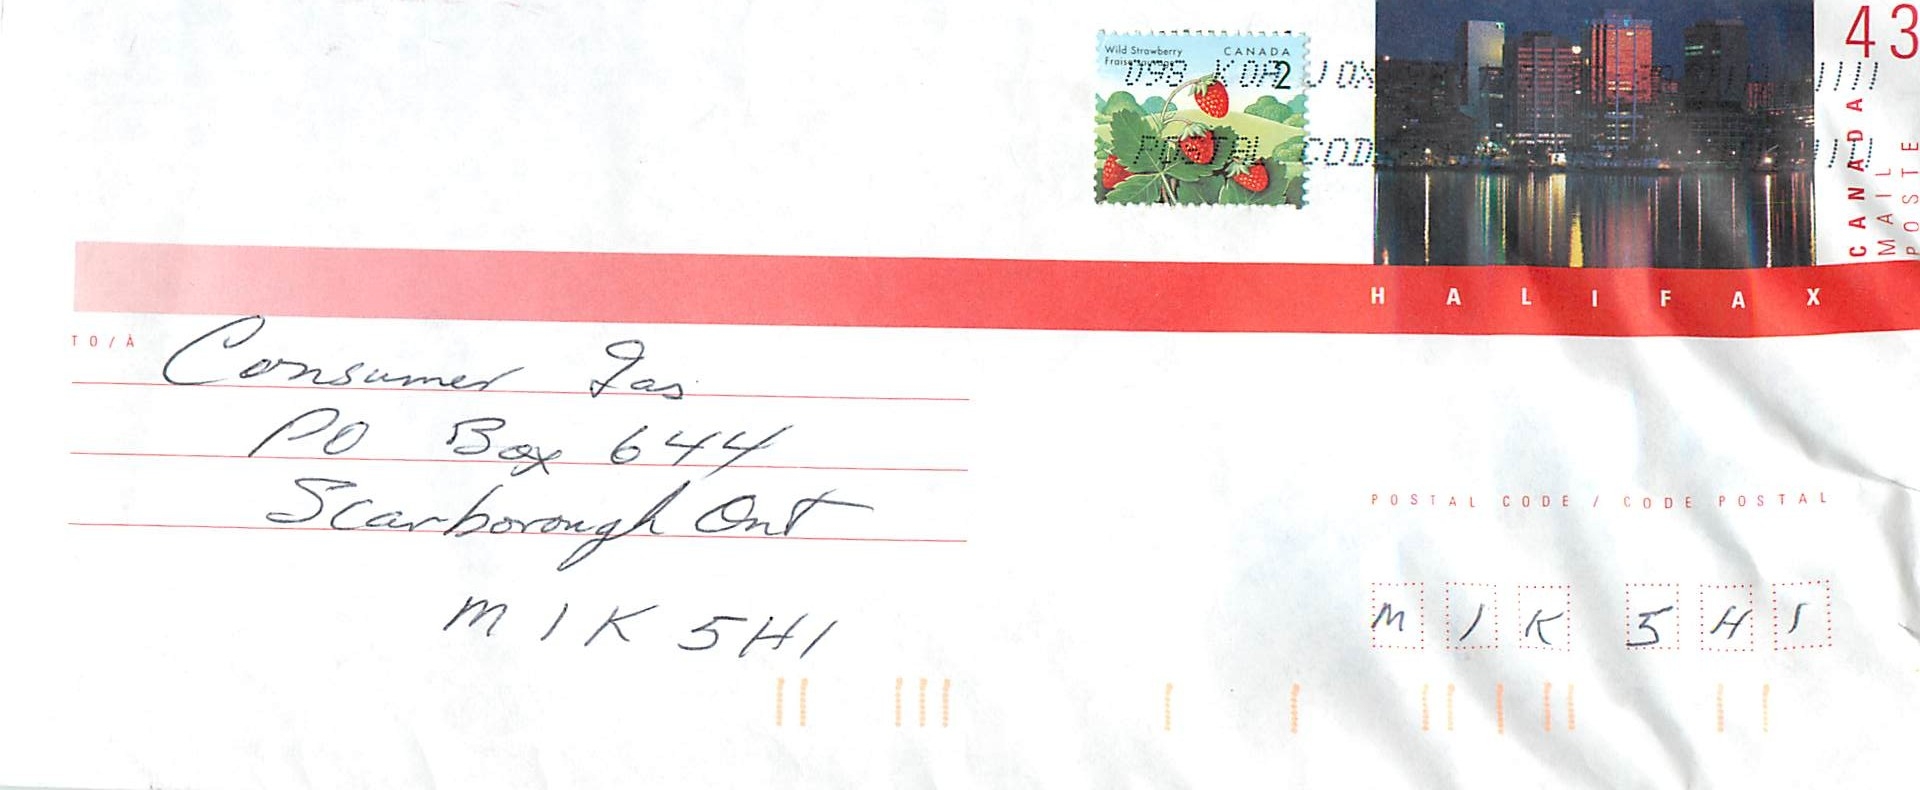 Wild Strawberry CANADA
Fraise sauvage 2
43
CANADA
MAIL
POSTE
K0A
POSTAL CODE
HALIFAX
TO / À
Consumer Gas
PO Box 644
Scarborough Ont
M1K 5H1
POSTAL CODE / CODE POSTAL
M 1 K 5 H 1